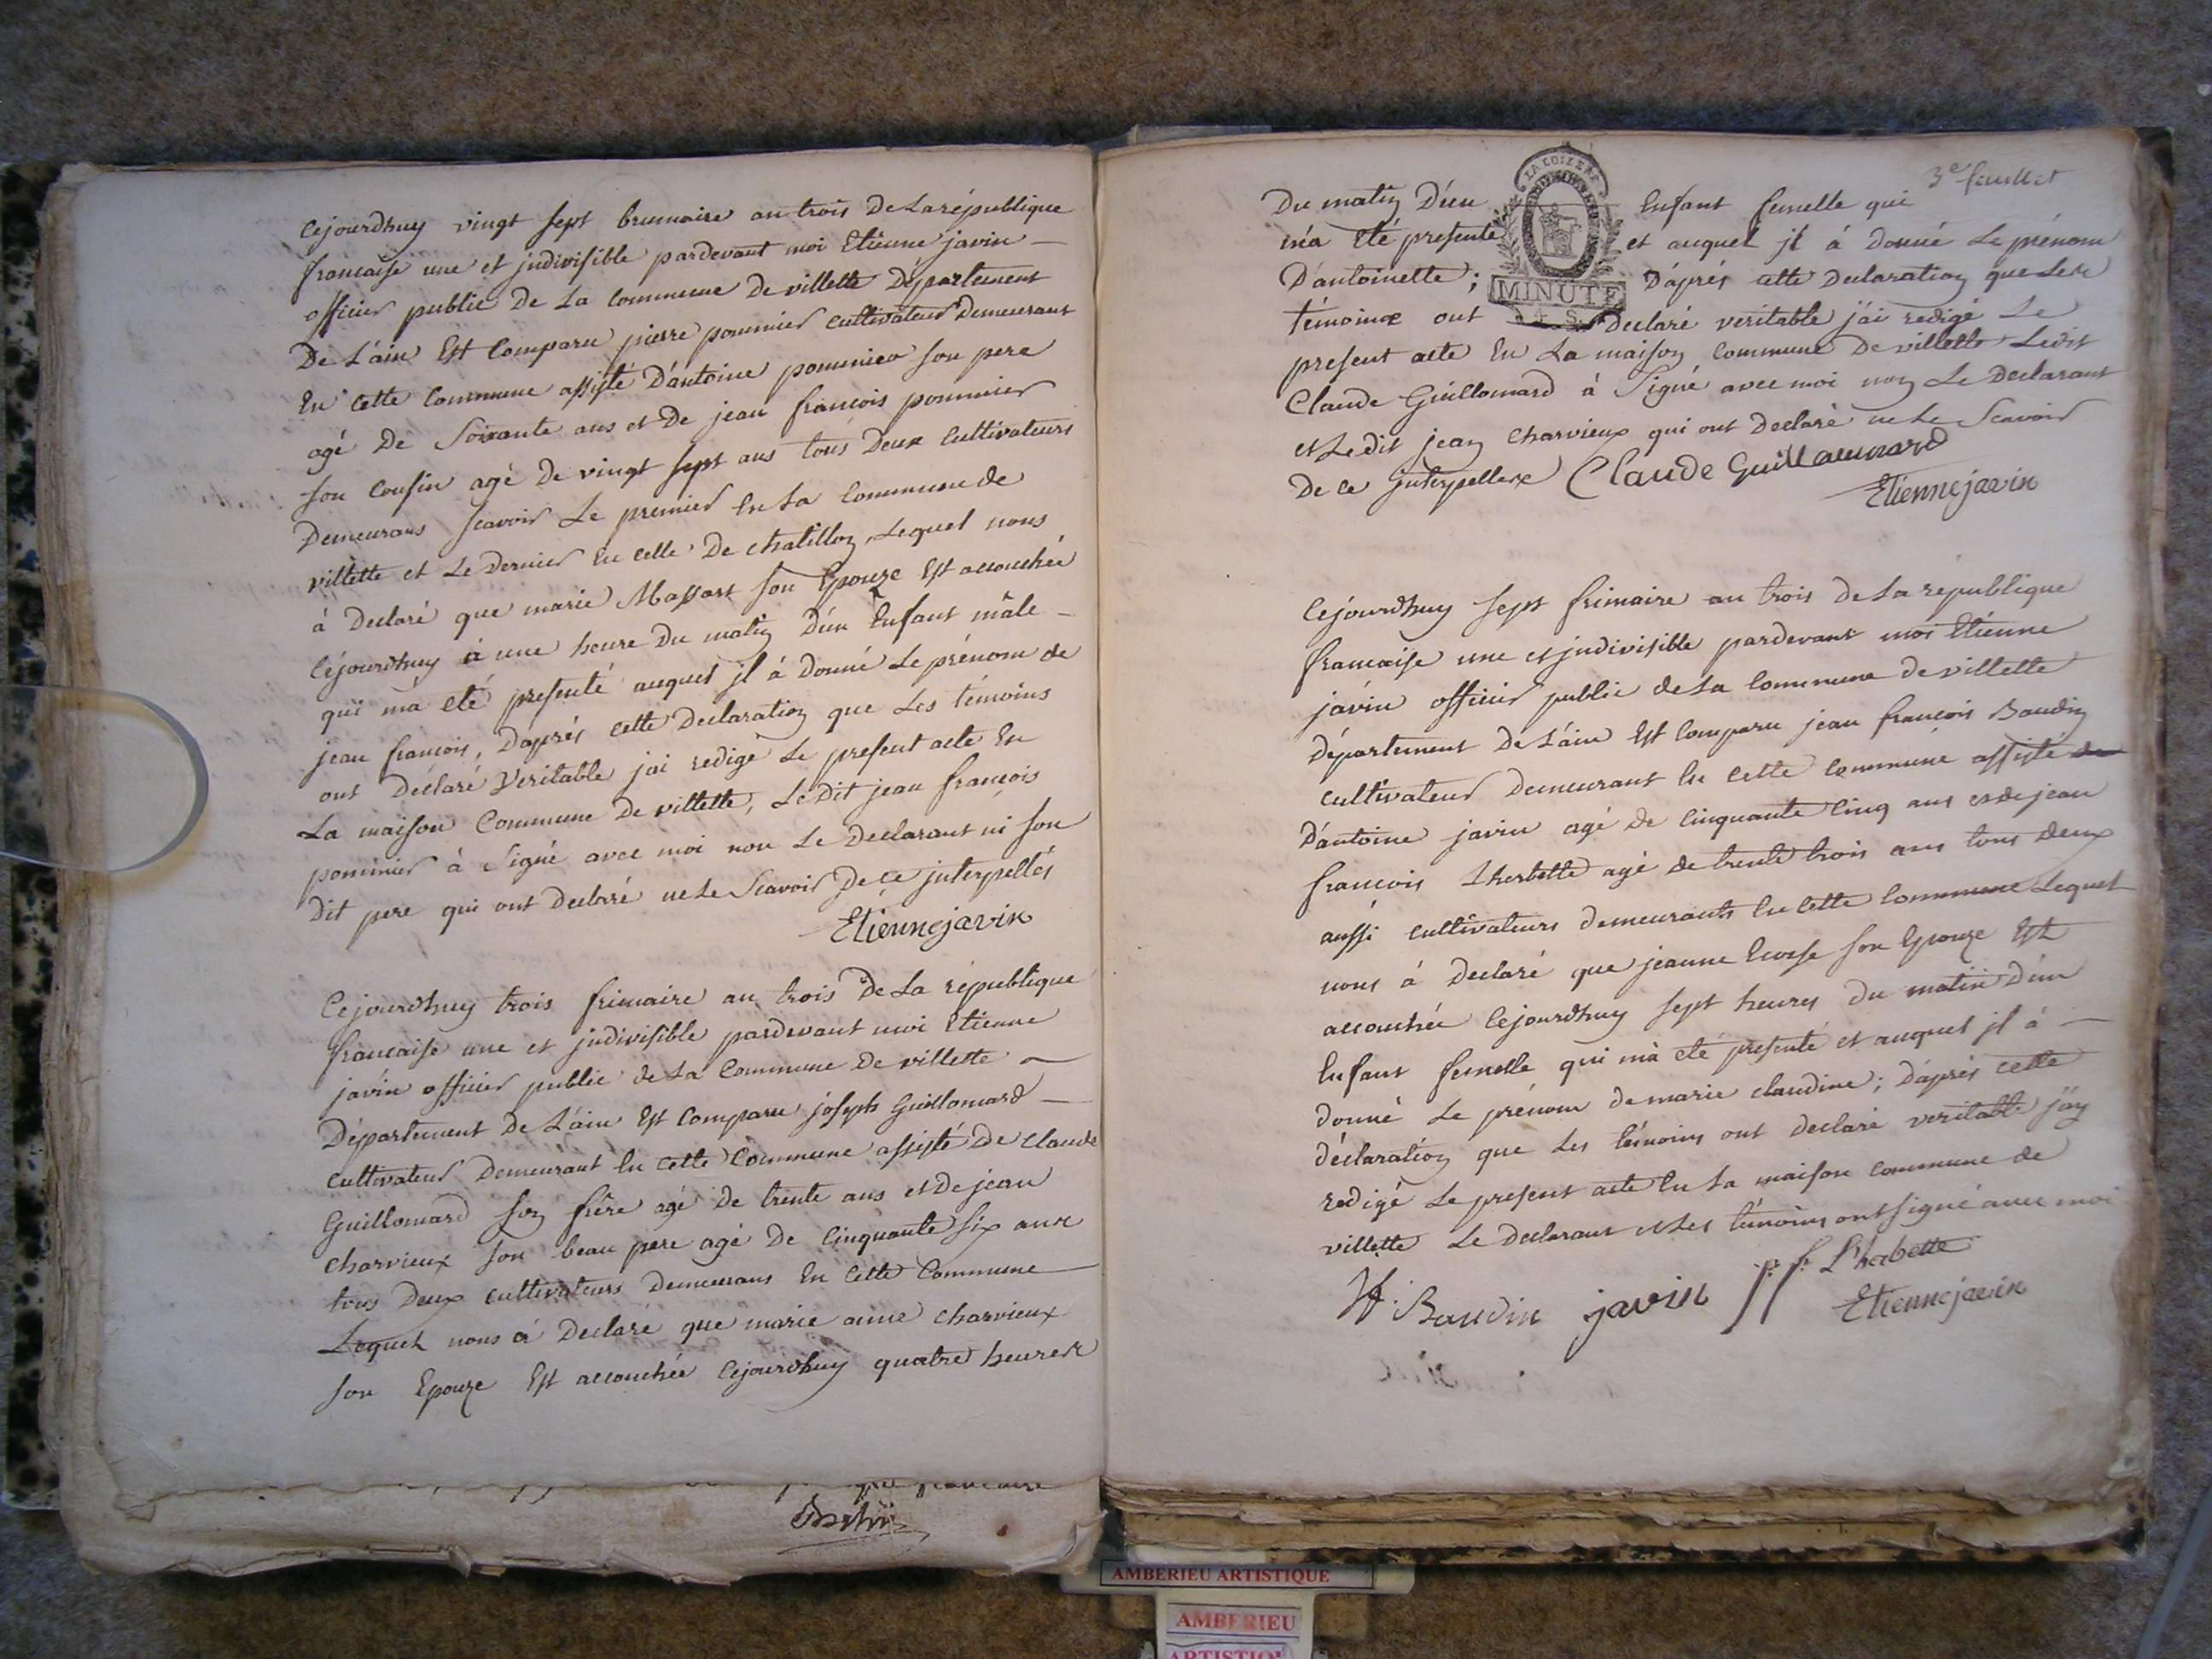 Cejourdhuy vingt sept brumaire an trois De La république
francaise une et jndivisible pardevant moi Etienne javin
officier public De La Commune De villette Département
De L'ain Est Comparu pierre pommier cultivateur Demeurant
En cette Commune assisté D'antoine pommier son pere
agé De Soixante ans et De jean francois pommier
son cousin agé de vingt sept ans tous Deux Cultivateurs
Demeurans scavoir Le premier En La Commune de
villette et Le Dernier En celle De chatillon, Lequel nous
à Declaré que marie Massart son Epouze Est accouchée
Cejourdhuy à une heure Du matin D'un Enfant mâle
qui m'a été presenté auquel jl à Donné Le prénom de
jean francois, D'aprés cette Declaration que Les témoins
ont Déclaré Veritable jai redigé Le present acte En
La maison Commune De villette, Le Dit jean francois
pommier à Signé avec moi non Le Declarant ni son
Dit pere qui ont Declaré ne Le Scavoir De ce jnterpellés
Etienne javin
Cejourdhuy trois frimaire an trois De La république
francaise une et jndivisible pardevant moi Etienne
javin officier public de La Commune De villette
Département De L'ain Est Comparu joseph Guillomard
Cultivateur Demeurant En cette Commune assisté De claude
Guillomard son frére agé De trente ans et De jean
charvieux son beau pere agé De Cinquante Six ans
tous Deux cultivateurs Demeurans En Cette Commune
Lequel nous à Declaré que marie anne charvieux
son Epouze Est accouchée Cejourdhuy quatre heures
3e feuillet
Du matin D'un Enfant femelle qui
m'a Eté presenté et auquel jl à Donné Le prénom
D'antoinette; D'aprés cette Declaration que Les
témoins ont Declaré veritable j'ai redigé Le
present acte En La maison Commune De villette Ledit
Claude Guillomard à Signé avec moi non Le Declarant
et Le dit jean charvieux qui ont Declaré ne Le Scavoir
De ce jnterpelles Claude Guillaumard
Etienne javin
LA LOI
MINUTE
4 S.
Cejourdhuy sept frimaire an trois De La republique
francaise une et jndivisible pardevant moi Etienne
javin officier public de La Commune De villette
Département De L'ain Est Comparu jean francois Baudin
cultivateur Demeurant En cette commune assisté de
D'antoine javin agé de Cinquante Cinq ans et de jean
francois Lherbette agé de trente trois ans tous deux
aussi cultivateurs demeurants En Cette Commune Lequel
nous à Declaré que jeanne son Epouze Est
accouchée Cejourdhuy sept heures Du matin D'un
Enfant femelle qui m'à eté presenté et auquel jl à
Donné Le prénom de marie claudine; D'aprés cette
Déclaration que Les témoins ont Declaré veritable j'ay
redigé Le present acte En La maison Commune de
villette Le Declarant et Les témoins ont signé avec moi
Baudin javin j. f. L'herbette
Etienne javin
AMBERIEU ARTISTIQUE
AMBERIEU
ARTISTIQUE